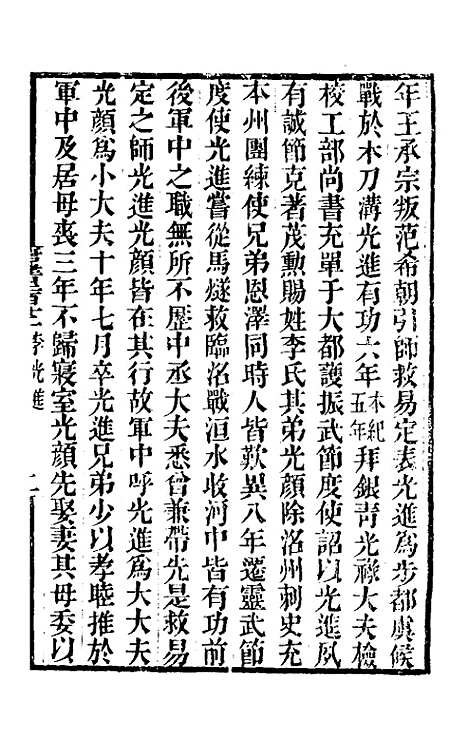 年王承宗叛范希朝引師救易定表光進爲步都虞候
戰於木刀溝光進有功六年本紀五年拜銀靑光祿大夫檢
校工部尚書充單于大都護振武節度使詔以光進夙
有誠節克著茂勲賜姓李氏其弟光顏除洺州刺史充
本州團練使兄弟恩澤同時人皆歎異八年遷靈武節
度使光進嘗從馬燧救臨洺戰洹水收河中皆有功前
後軍中之職無所不歷中丞大夫悉曾兼帶先是救易
定之師光進光顏皆在其行故軍中呼光進爲大大夫
光顏爲小大夫十年七月卒光進兄弟少以孝睦推於
軍中及居母喪三年不歸寢室光顏先娶妻其母委以
李光進